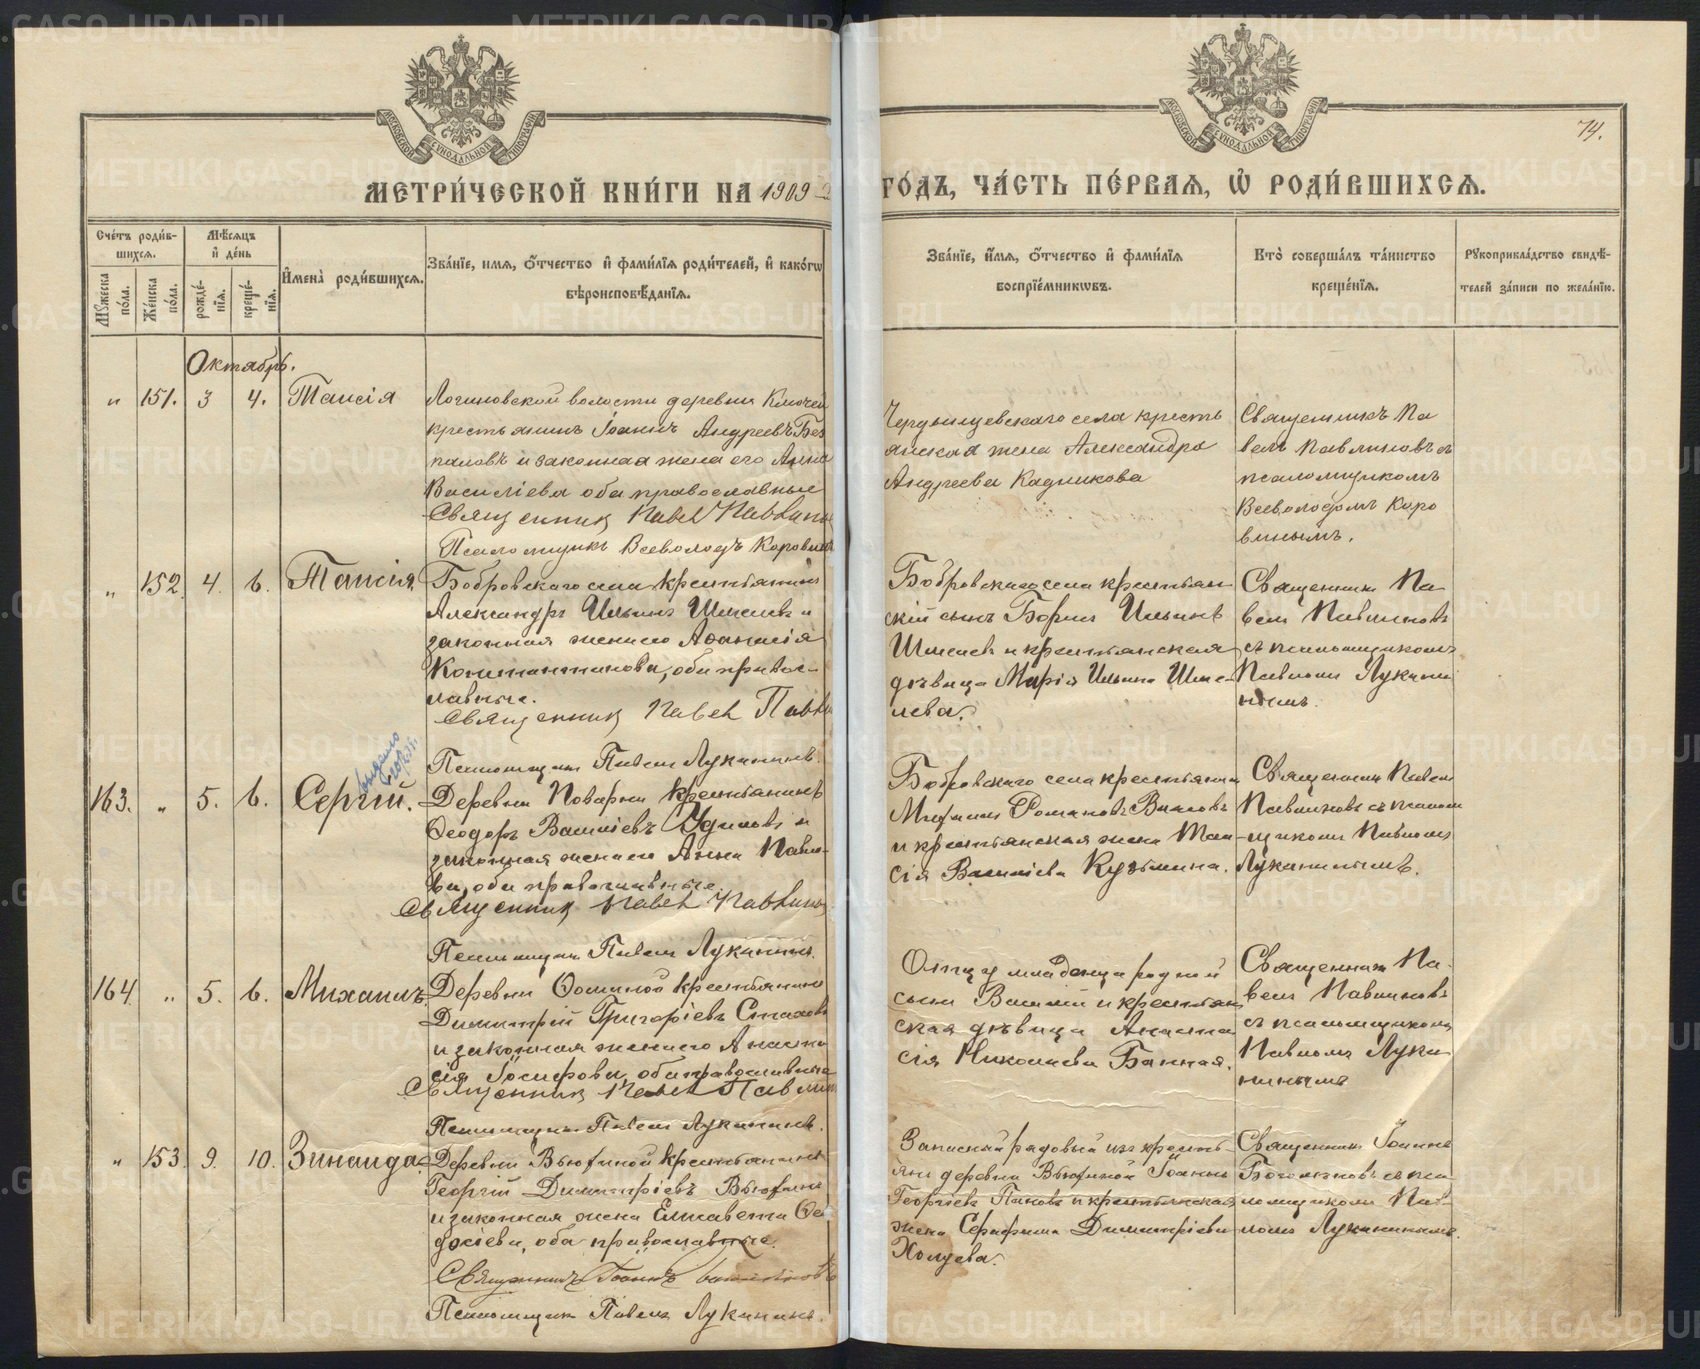 МЕТРИ́ЧЕСКОЙ КНИ́ГИ НА 1909
ГО́ДЪ, ЧА́СТЬ ПЕ́РВАЯ, Ѡ҆ РОДИ́ВШИХСЯ.
74.
МОСКОВСКОЙ СѴНОДАЛЬНОЙ ТИПОГРАФІИ
МОСКОВСКОЙ СѴНОДАЛЬНОЙ ТИПОГРАФІИ
Сче́тъ роди́вшихся.
Мꙋ́жеска по́ла.
Же́нска по́ла.
Мѣ́сяцъ и҆ де́нь
рожде́нїя.
креще́нїя.
И҆мена̀ роди́вшихся.
Зва́нїе, имя, ѻ҆́тчество и҆ фами́лїя роди́телей, и҆ како́гѡ
вѣроисповѣ́данїя.
Зва́нїе, и҆́мя, ѻ҆́тчество и҆ фами́лїя
воспрїе́мникѡвъ.
Кто̀ соверша́лъ та́инство
креще́нїя.
Рꙋкоприкла́дство свидѣ́-
телей за́писи по жела́нїю.
Октябрь.
" 151. 3 4. Таисія
Логиновской волости деревни Ключей
крестьянинъ Іоаннъ Андреевъ Без
паловъ и законная жена его Анна
Василіева оба православные
Священникъ Павелъ Павлин
Псаломщикъ Всеволодъ Коровинъ
Чердынцевскаго села кресть
янская жена Александра
Андреева Кадникова
Священникъ Па
велъ Павлиновъ съ
псаломщикомъ
Всеволодомъ Коро
винымъ.
" 152. 4. 6. Таисія
Бобровскаго села крестьянинъ
Александръ Ильинъ Шмелевъ и
законная жена его Аѳанасія
Константинова, оба правос-
лавные.
Священникъ Павелъ Павли
Псаломщикъ Павелъ Луканинъ.
Бобровскаго села крестьян
скій сынъ Борисъ Ильинъ
Шмелевъ и крестьянская
дѣвица Марія Ильина Шме-
лева.
Священникъ Па-
велъ Павлиновъ
съ псаломщикомъ
Павломъ Лукани
нымъ.
выдано
163. " 5. 6. Сергій.
Деревни Поварни крестьянинъ
Ѳеодоръ Василіевъ Удиловъ и
законная жена его Анна Павло-
ва, оба православные.
Священникъ Павелъ Павлинъ
Псаломщикъ Павелъ Луканинъ.
Бобровскаго села крестьянинъ
Романовъ
и крестьянская жена Таи-
сія Василіева Кузьмина.
Священникъ Павелъ
Павлиновъ съ псалом
щикомъ Павломъ
Луканинымъ.
164. " 5. 6. Михаилъ.
Деревни Ѳоминой крестьянинъ
Димитрій Григоріевъ Стаховъ
и законная жена его Анаста
сія Іосифова, оба православные
Священникъ Павелъ Павлин
Псаломщикъ Павелъ Луканинъ.
Отцу младенца родной
сынъ Василій и крестьян
ская дѣвица Анаста
сія Николаева Банная.
Священникъ Па-
велъ Павлиновъ
съ псаломщикомъ
Павломъ Лука
нинымъ
" 153. 9. 10. Зинаида.
Деревни Вьюхиной крестьянинъ
Георгій Димитріевъ Вьюхинъ
и законная жена Елисавета Ѳе
досіева, оба православные.
Священникъ Іоаннъ
Псаломщикъ Павелъ Луканинъ.
Запасный рядовый изъ кресть-
янъ деревни Вьюхиной Іоаннъ
Георгіевъ Пановъ и крестьянская
жена Серафима Димитріева
Холуева.
Священникъ Іоаннъ
съ пса-
ломщикомъ Пав-
ломъ Луканинымъ.
METRIKI.GASO-URAL.RU